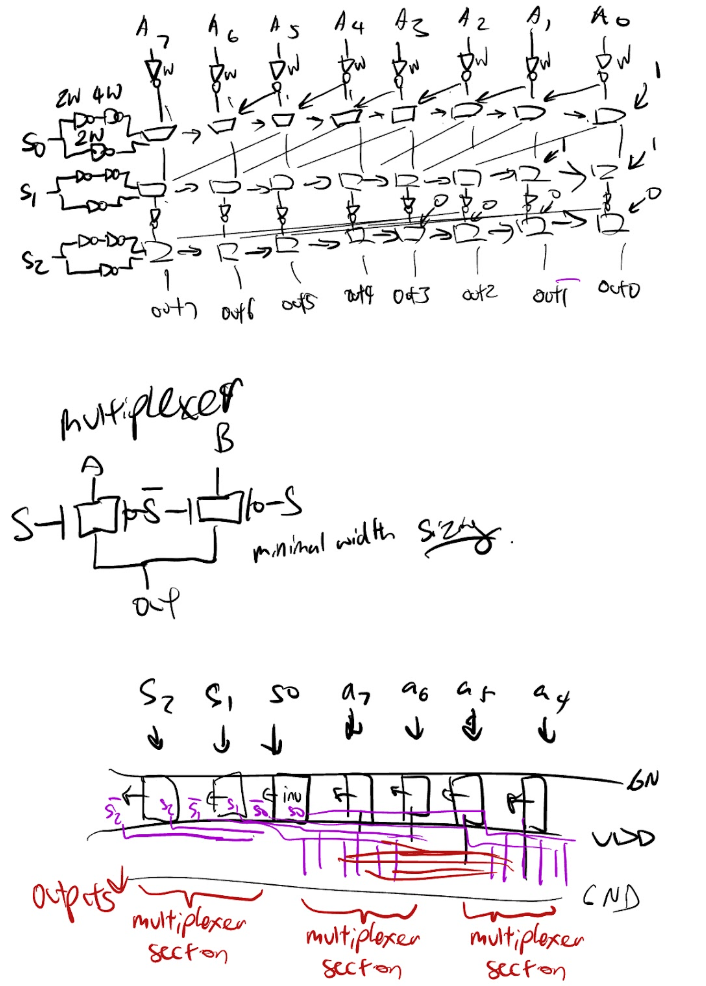 A7 A6 A5 A4 A3 A2 A1 A0
W W W W W W W W
2W 4W 1
S0 2W
1 1
S1
0 0 0 0 0
S2
out7 out6 out5 out4 out3 out2 out1 out0
multiplexer
A B
S S̅ S
minimal width sizing.
out
S2 S1 S0 a7 a6 a5 a4
GN
S̅2 S2 S̅1 S1 S̅0 inv S0
VDD
outputs GND
multiplexer section
multiplexer section
multiplexer section